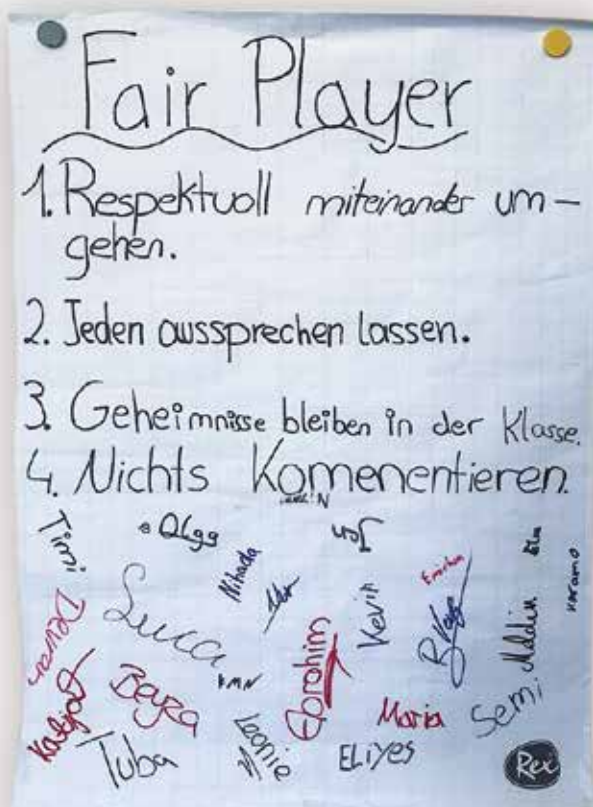 Fair Player
1. Respektvoll miteinander um-
gehen.
2. Jeden aussprechen lassen.
3. Geheimnisse bleiben in der Klasse.
4. Nichts Komenentieren.
Timi
Olga
Nihada
Luca
Kevin
Ebrahim
Aldin
KMN
Baga
Maria
Semi
Tuba
Leonie
ELiYES
Rex